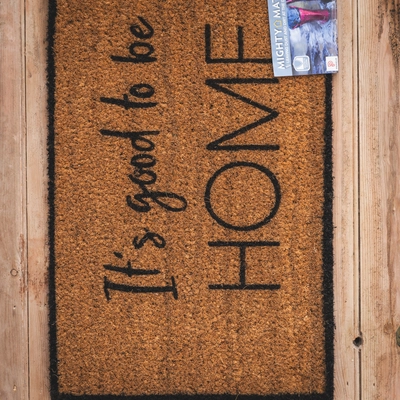 It's good to be
HOME
MIGHTY MA